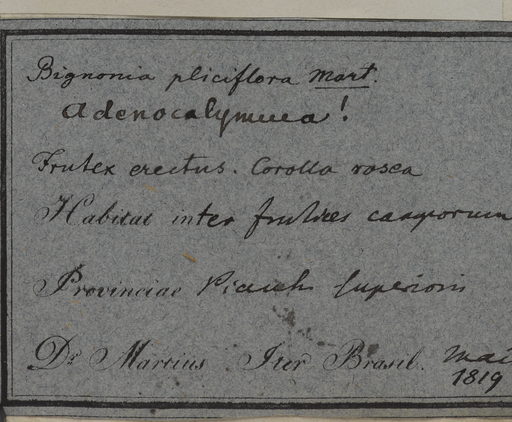 Bignonia pliciflora Mart.
Adenocalymna!
Frutex erectus. Corolla rosea
Habitat inter frutices camporum
Provinciae Piauhi superioris
Dr Martius Iter Brasil. Mai
1819